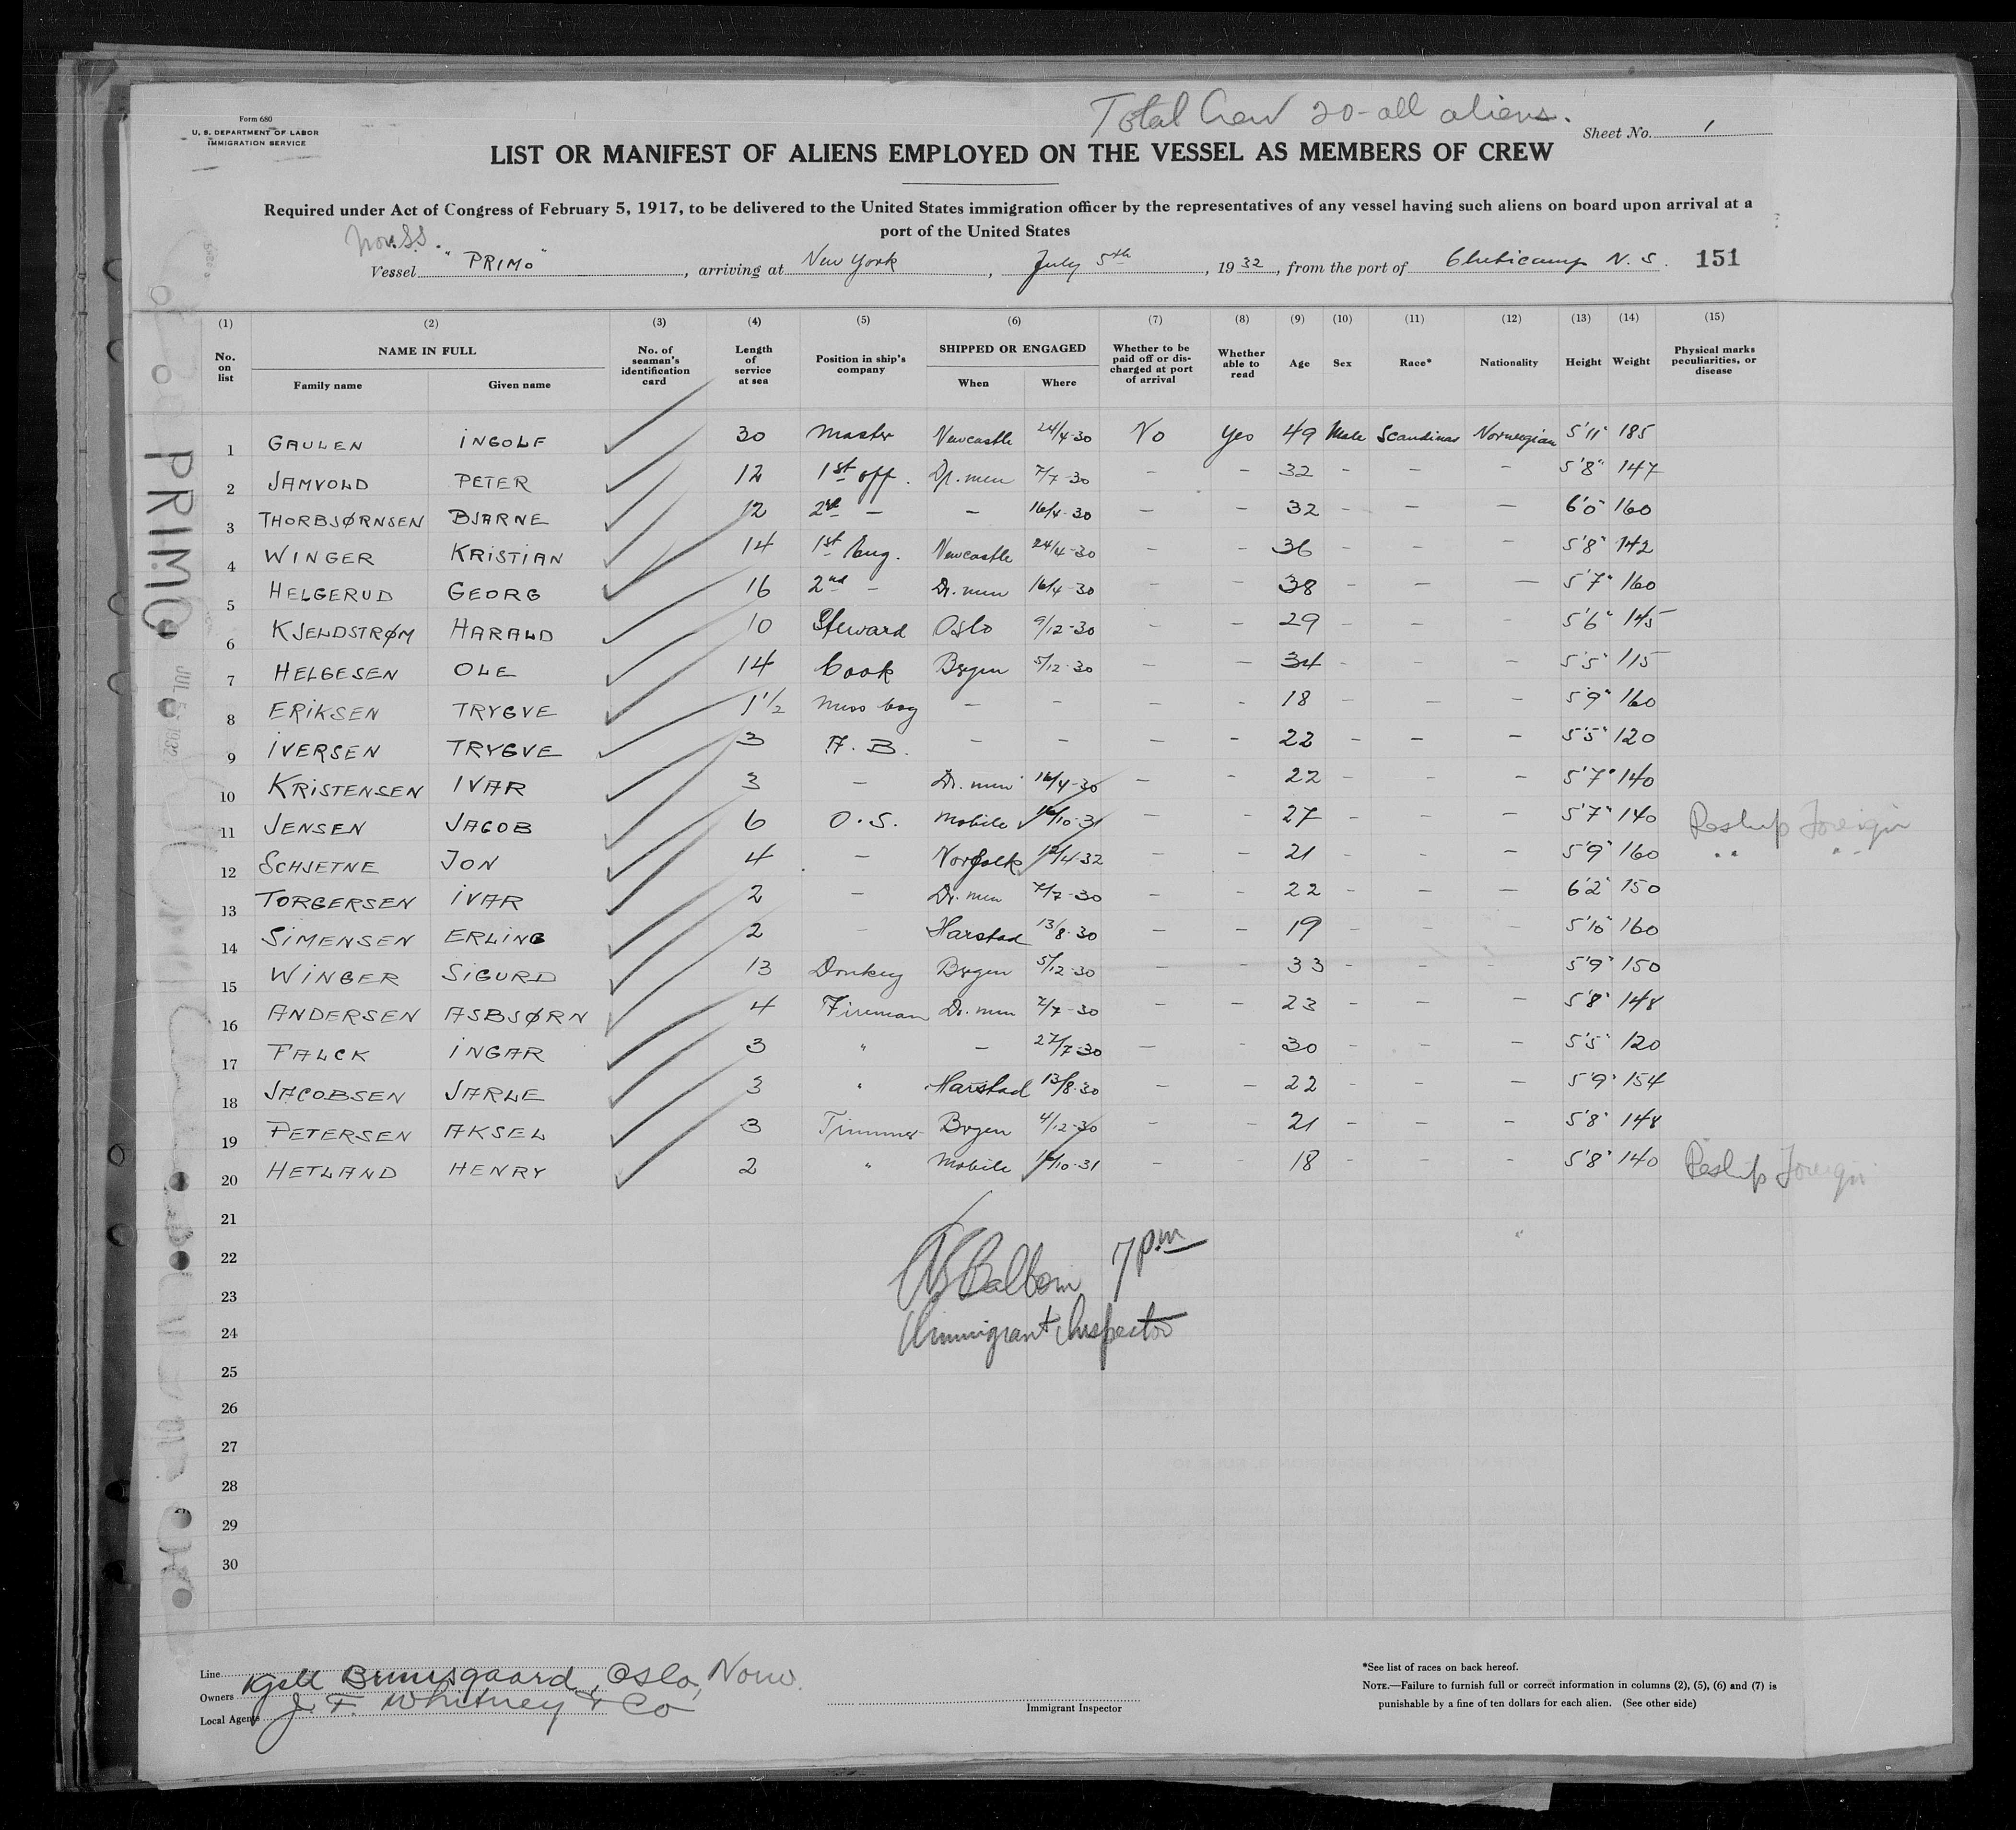 Total Crew 20 - all aliens.
Form 680
U. S. DEPARTMENT OF LABOR
IMMIGRATION SERVICE
Sheet No. 1
LIST OR MANIFEST OF ALIENS EMPLOYED ON THE VESSEL AS MEMBERS OF CREW
Required under Act of Congress of February 5, 1917, to be delivered to the United States immigration officer by the representatives of any vessel having such aliens on board upon arrival at a
port of the United States
Nor. S.S.
Vessel "PRIMO", arriving at New York, July 5th, 1932, from the port of Cheticamp N. S. 151
(1) (2) (3) (4) (5) (6) (7) (8) (9) (10) (11) (12) (13) (14) (15)
No. on list NAME IN FULL Family name Given name No. of seaman's identification card Length of service at sea Position in ship's company SHIPPED OR ENGAGED When Where Whether to be paid off or discharged at port of arrival Whether able to read Age Sex Race* Nationality Height Weight Physical marks peculiarities, or disease
1 GAULEN INGOLF 30 Master Newcastle 24/4-30 No Yes 49 Male Scandinav Norwegian 5'11" 185
2 JAMVOLD PETER 12 1st off. Dr.men 7/7-30 - - 32 - - - 5'8" 147
3 THORBJØRNSEN BJARNE 12 2nd - - 16/4-30 - - 32 - - - 6'0 160
4 WINGER KRISTIAN 14 1st Eng. Newcastle 24/4-30 - - 36 - - - 5'8" 142
5 HELGERUD GEORG 16 2nd - Dr.men 16/4-30 - - 38 - - - 5'7" 160
6 KJELDSTRØM HARALD 10 Steward Oslo 9/12-30 - - 29 - - - 5'6" 145
7 HELGESEN OLE 14 Cook Bergen 5/12-30 - - 34 - - - 5'5" 115
8 ERIKSEN TRYGVE 1 1/2 Mess boy - - - - 18 - - - 5'9" 160
9 IVERSEN TRYGVE 3 A. B. - - - - 22 - - - 5'5" 120
10 KRISTENSEN IVAR 3 - Dr.men 16/4-30 - - 22 - - - 5'7" 140
11 JENSEN JACOB 6 O.S. Mobile 16/10-31 - - 27 - - - 5'7" 140 Reship Foreign
12 SCHJETNE JON 4 - Norfolk 12/4-32 - - 21 - - - 5'9" 160 " "
13 TORGERSEN IVAR 2 - Dr.men 7/7-30 - - 22 - - - 6'2" 150
14 SIMENSEN ERLING 2 - Harstad 13/8-30 - - 19 - - - 5'10" 160
15 WINGER SIGURD 13 Donkey Bergen 5/12-30 - - 33 - - - 5'9" 150
16 ANDERSEN ASBJØRN 4 Fireman Dr.men 7/7-30 - - 23 - - - 5'8" 148
17 FALCK INGAR 3 " - 27/7-30 - - 30 - - - 5'5" 120
18 JACOBSEN JARLE 3 " Harstad 13/8-30 - - 22 - - - 5'9" 154
19 PETERSEN AKSEL 3 Trimmer Bergen 4/12-30 - - 21 - - - 5'8" 148
20 HETLAND HENRY 2 " Mobile 16/10-31 - - 18 - - - 5'8" 140 Reship Foreign
21
22
23
24
25
26
27
28
29
30
7 pm
Immigrant Inspector
PRIMO
JUL 5 1932
Line
Owners Kjell Bruusgaard, Oslo, Norw.
Local Agents J. F. Whitney & Co
Immigrant Inspector
*See list of races on back hereof.
NOTE.—Failure to furnish full or correct information in columns (2), (5), (6) and (7) is
punishable by a fine of ten dollars for each alien. (See other side)